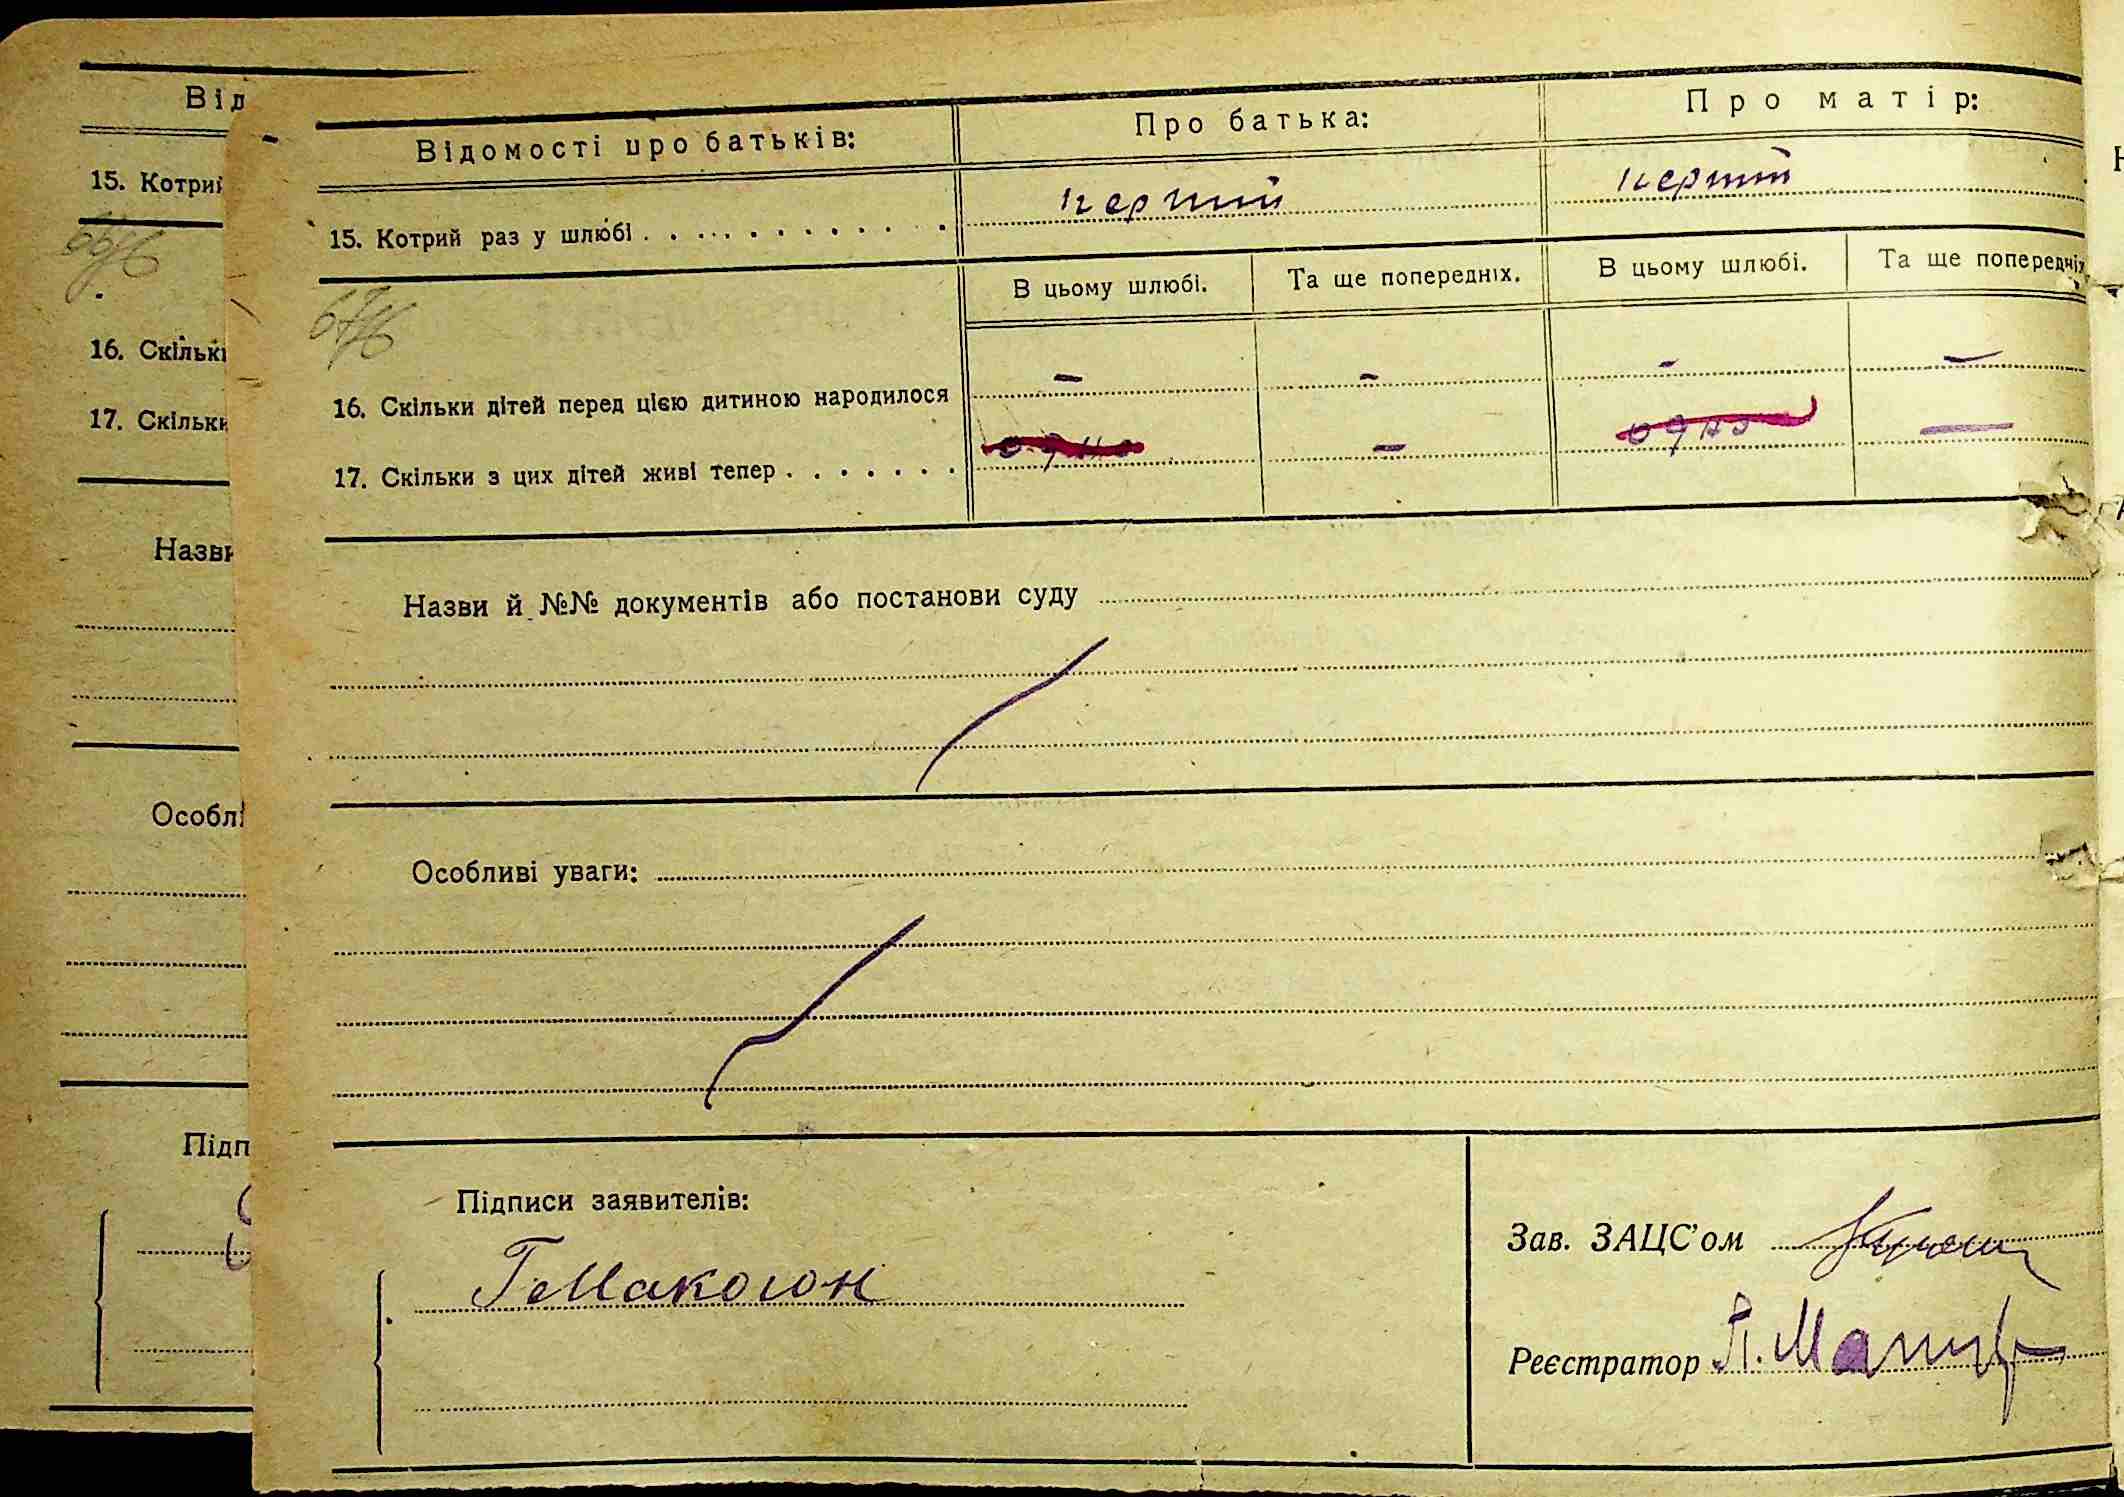 Від
15. Котрий
66/76
16. Скільки
17. Скільки
Назви
Особлі
Підп
Відомості про батьків:
Про батька:
Про матір:
15. Котрий раз у шлюбі
перший
перший
67/76
В цьому шлюбі.
Та ще попередніх.
В цьому шлюбі.
Та ще попередніх
16. Скільки дітей перед цією дитиною народилося
- - - -
17. Скільки з цих дітей живі тепер
одно - одно -
Назви й №№ документів або постанови суду
Особливі уваги:
Підписи заявителів:
Г Макогон
Зав. ЗАЦС'ом
Реєстратор П.